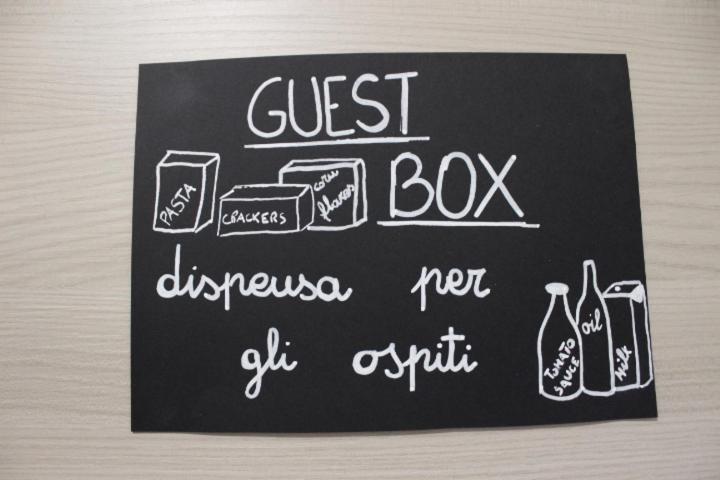 GUEST
BOX
PASTA
CRACKERS
corn
flakes
dispensa per
gli ospiti
TOMATO
SAUCE
oil
Milk